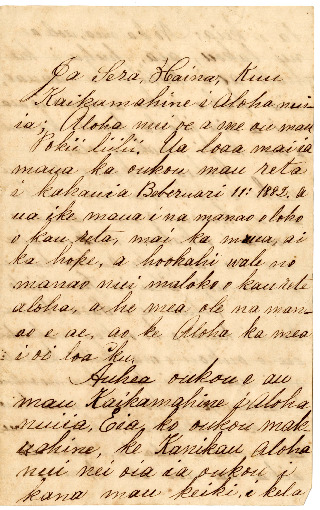 Ia Sera, Haina, Kuu
Kaikamahine i Aloha nui
ia; Aloha nui oe a me ou mau
Pokii liilii, Ua loaa mai ia
maua ka oukou mau leta
i kakauia Beberuari 11: 1882. a
ua ike maua i na manao o loko
o kau leta, mai ka mua, a i
ka hope, a hookahi wale no
manao nui maloko o kau leta
aloha, a he mea ole na man-
ao e ae, ao ke Aloha ka mea
i oi loa ku.
Auhea oukou e au
mau Kaikamahine i Aloha
nuiia, Eia ko oukou mak-
uahine, ke Kanikau Aloha
nui nei oia ia oukou i
kana mau keiki, i kela